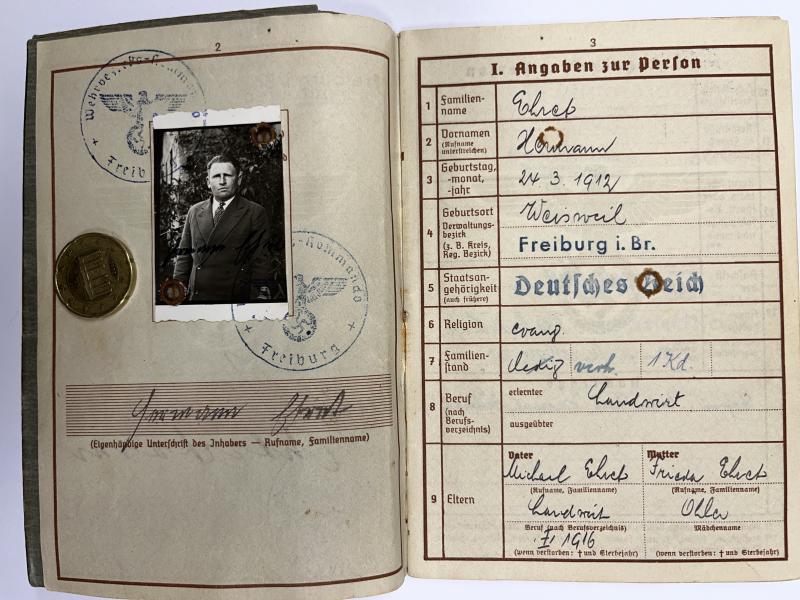 2
Wehrbezirks-Kommando
+ Freiburg +
-Kommando
+ Freiburg +
Hermann
(Eigenhändige Unterschrift des Inhabers — Rufname, Familienname)
3
I. Angaben zur Person
1 Familien-
name
2 Vornamen
(Rufname
unterstreichen)
Hermann
3 Geburtstag,
-monat,
-jahr
24. 3. 1912
4 Geburtsort
Verwaltungs-
bezirk
(z. B. Kreis,
Reg. Bezirk)
Weisweil
Freiburg i. Br.
5 Staatsan-
gehörigkeit
(auch frühere)
Deutsches Reich
6 Religion
evang.
7 Familien-
stand
ledig verh. 1 Kd.
8 Beruf
(nach
Berufs-
verzeichnis)
erlernter
Landwirt
ausgeübter
9 Eltern
Vater Mutter
Michael Frieda
(Rufname, Familienname) (Rufname, Familienname)
Landwirt
Beruf (nach Berufsverzeichnis) Mädchenname
1916
(wenn verstorben: † und Sterbejahr) (wenn verstorben: † und Sterbejahr)